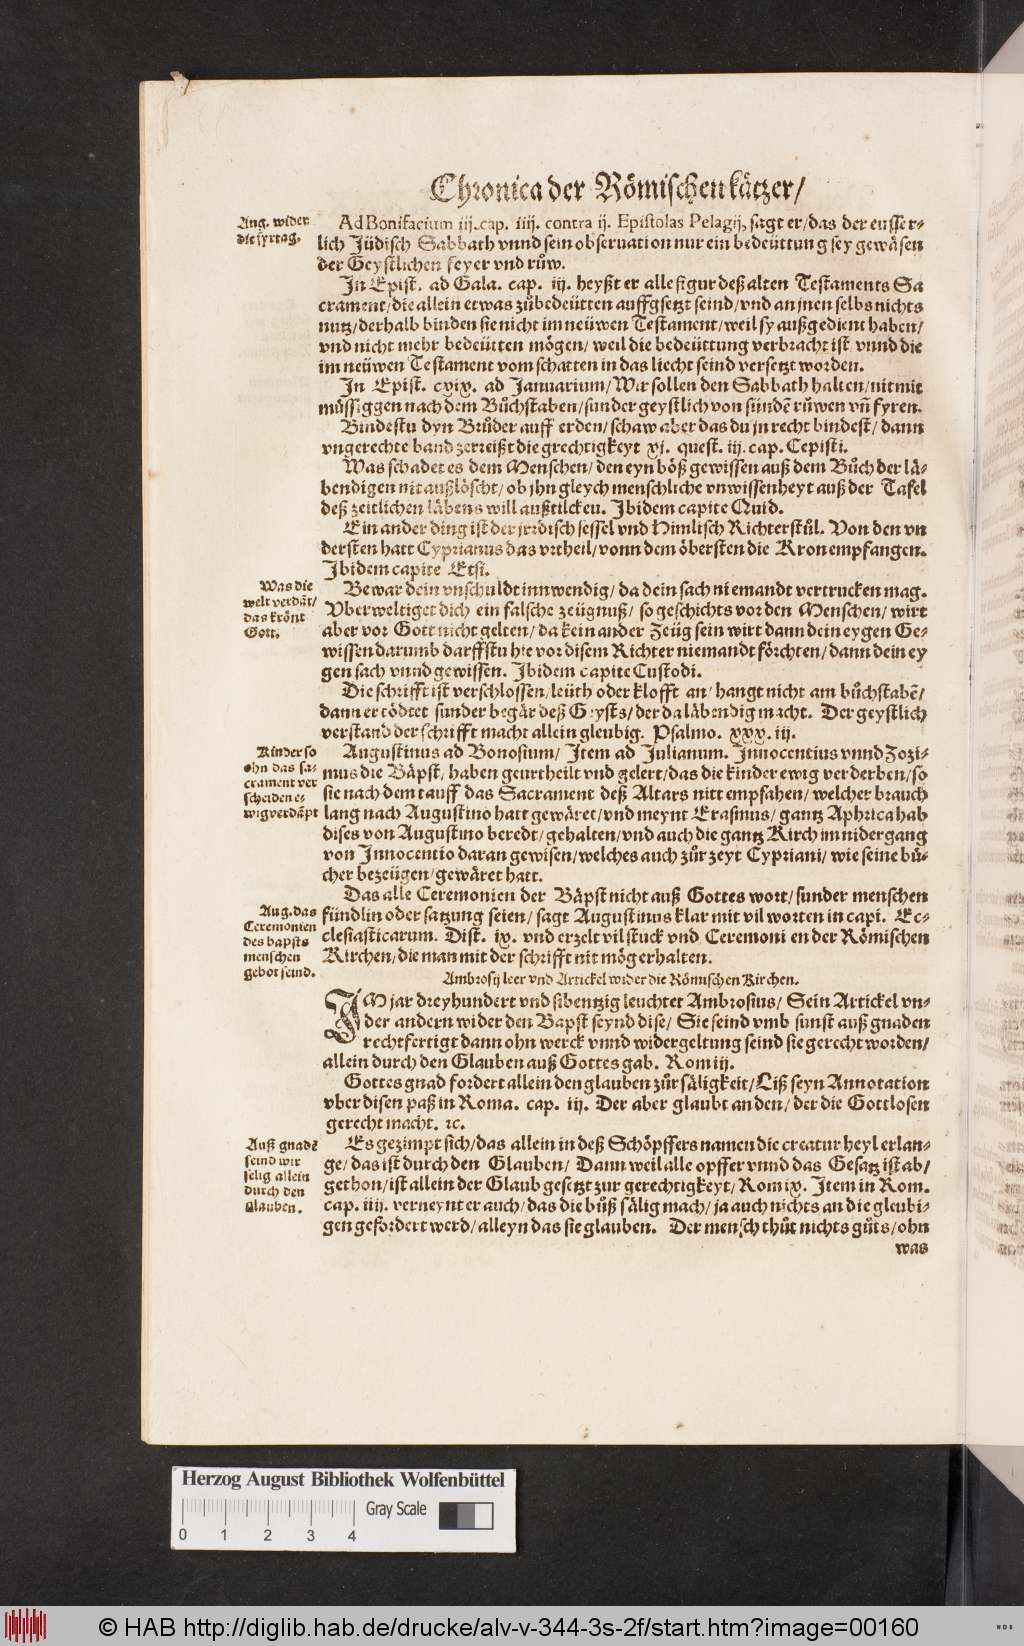 Chronica der Römischen kätzer/
Aug. wider
die fyrtag.
Ad Bonifacium iij. cap. iiij. contra ij. Epistolas Pelagij, sagt er/das der eusser-
lich Jüdisch Sabbath vnnd sein obseruation nur ein bedeüttung sey gewäsen
der Geystlichen feyer vnd růw.
In Epist. ad Gala. cap. iij. heyßt er alle figur deß alten Testaments Sa
crament/die allein etwas zůbedeütten auffgsetzt seind/vnd an jnen selbs nichts
nutz/derhalb binden sie nicht im neüwen Testament/weil sy außgedient haben/
vnd nicht mehr bedeütten mögen/weil die bedeüttung verbracht ist vnnd die
im neüwen Testament vom schatten in das liecht seind versetzt worden.
In Epist. cxix. ad Januarium/Wir sollen den Sabbath halten/nit mit
müssiggen nach dem Bůchstaben/sunder geystlich von sündē růwen vn̄ fyren.
Bindestu dyn Brůder auff erden/schaw aber das du jn recht bindest/dann
vngerechte band zerreißt die grechtigkeyt xj. quest. iij. cap. Cepisti.
Was schadet es dem Menschen/den eyn böß gewissen auß dem Bůch der lä-
bendigen nit außlöscht/ob jhn gleych menschliche vnwissenheyt auß der Tafel
deß zeitlichen läbens will außtilcken. Ibidem capite Quid.
Ein ander ding ist der jrrdisch sessel vnd Himlisch Richterstůl. Von den vn
dersten hatt Cyprianus das vrtheil/vonn dem öbersten die Kron empfangen.
Ibidem capite Etsi.
Was die
welt verdāt/
das krönt
Gott.
Bewar dein vnschuldt innwendig/da dein sach niemandt vertrucken mag.
Vberweltiget dich ein falsche zeügnuß/so geschichts vor den Menschen/wirt
aber vor Gott nicht gelten/da kein ander Zeüg sein wirt dann dein eygen Ge-
wissen darumb darffstu hie vor disem Richter niemandt förchten/dann dein ey
gen sach vnnd gewissen. Ibidem capite Custodi.
Die schrifft ist verschlossen/leüth oder klofft an/hangt nicht am bůchstabē/
dann er tödtet sunder begär deß Geysts/der da läbendig macht. Der geystlich
verstand der schrifft macht allein gleubig. Psalmo. xxx. iij.
Kinder so
ohn das sa-
crament ver
scheiden e-
wig verdāpt
Augustinus ad Bonosium/Item ad Julianum. Innocentius vnnd Zozi-
mus die Bäpst/haben geurtheilt vnd gelert/das die kinder ewig verderben/so
sie nach dem tauff das Sacrament deß Altars nitt empfahen/welcher brauch
lang nach Augustino hatt gewäret/vnd meynt Erasmus/gantz Aphrica hab
dises von Augustino beredt/gehalten/vnd auch die gantz Kirch im nidergang
von Innocentio daran gewisen/welches auch zůr zeyt Cypriani/wie seine bů-
cher bezeügen/gewäret hatt.
Das alle Ceremonien der Bäpst nicht auß Gottes wort/sunder menschen
Aug. das
Ceremonien
des bapsts
menschen
gebot seind.
fündlin oder satzung seien/sagt Augustinus klar mit vil worten in capi. Ec-
clesiasticarum. Dist. ix. vnd erzelt vil stuck vnd Ceremonien der Römischen
Kirchen/die man mit der schrifft nit mög erhalten.
Ambrosij leer vnd Artickel wider die Römischen Kirchen.
IM jar dreyhundert vnd sibentzig leuchtet Ambrosius/Sein Artickel vn-
der andern wider den Bapst seynd dise/Sie seind vmb sunst auß gnaden
rechtfertigt dann ohn werck vnnd widergeltung seind sie gerecht worden/
allein durch den Glauben auß Gottes gab. Rom iij.
Gottes gnad fordert allein den glauben zůr säligkeit/Liß seyn Annotation
vber disen paß in Roma. cap. iij. Der aber glaubt an den/der die Gottlosen
gerecht macht. ꝛc.
Auß gnadē
seind wir
selig allein
durch den
Glauben.
Es gezimpt sich/das allein in deß Schöpffers namen die creatur heyl erlan-
ge/das ist durch den Glauben/Dann weil alle opffer vnnd das Gesatz ist ab/
gethon/ist allein der Glaub gesetzt zur gerechtigkeyt/Rom ix. Item in Rom.
cap. iiij. verneynt er auch/das die bůß sälig mach/ja auch nichts an die gleubi-
gen gefordert werd/alleyn das sie glauben. Der mensch thůt nichts gůts/ohn
was
Herzog August Bibliothek Wolfenbüttel
Gray Scale
0 1 2 3 4
© HAB http://diglib.hab.de/drucke/alv-v-344-3s-2f/start.htm?image=00160